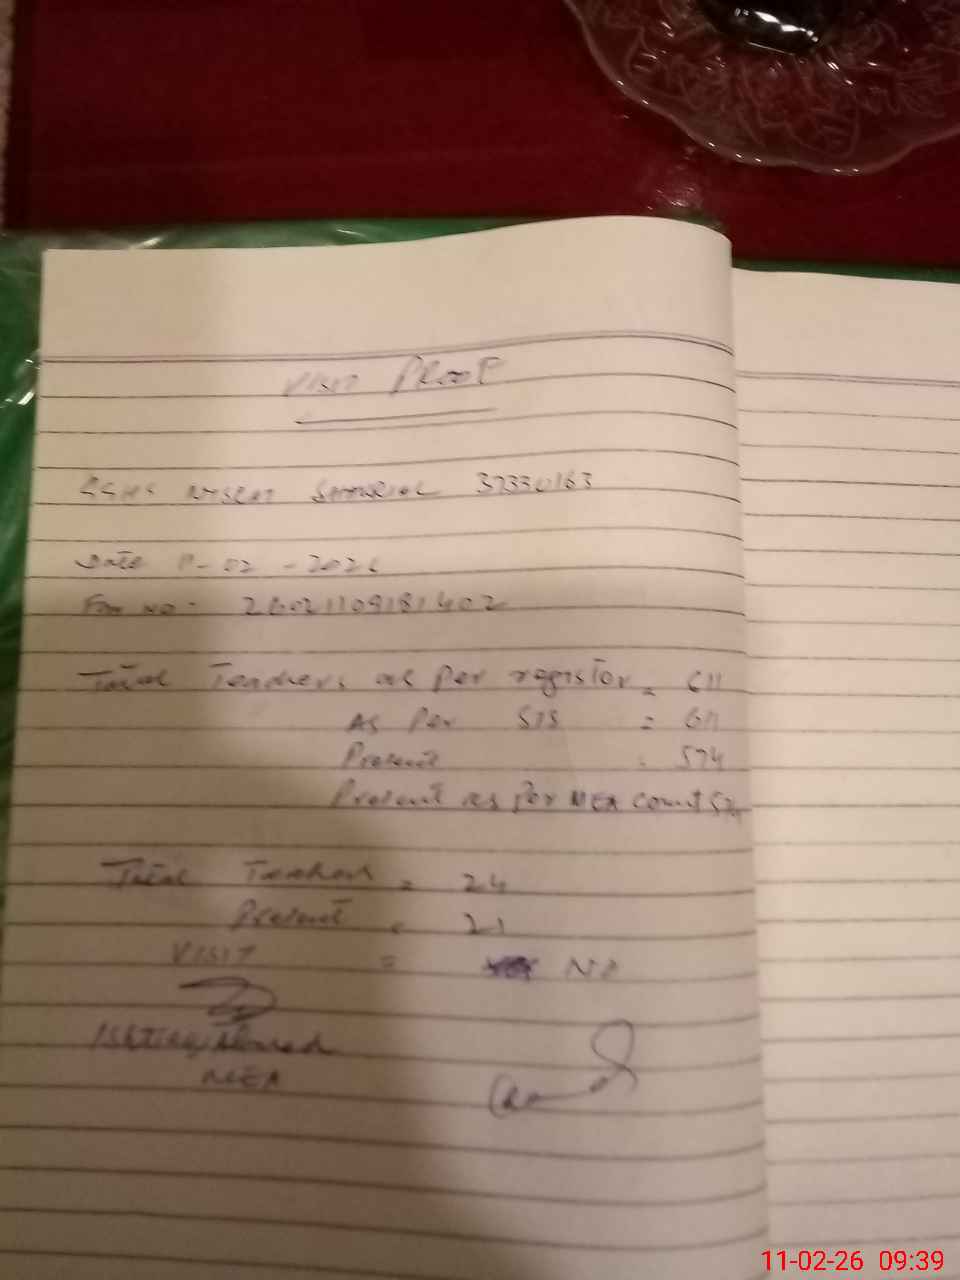 VISIT PROOF
37330163
Date 11-02-2026
No:- 26021109181402
Total Teachers as Per register = 611
As Per SIS = 611
Present : 574
Present as per MEA count 574
Total = 24
Present = 21
VISIT = NO
Ishtiaq Ahmad
MEA
11-02-26 09:39